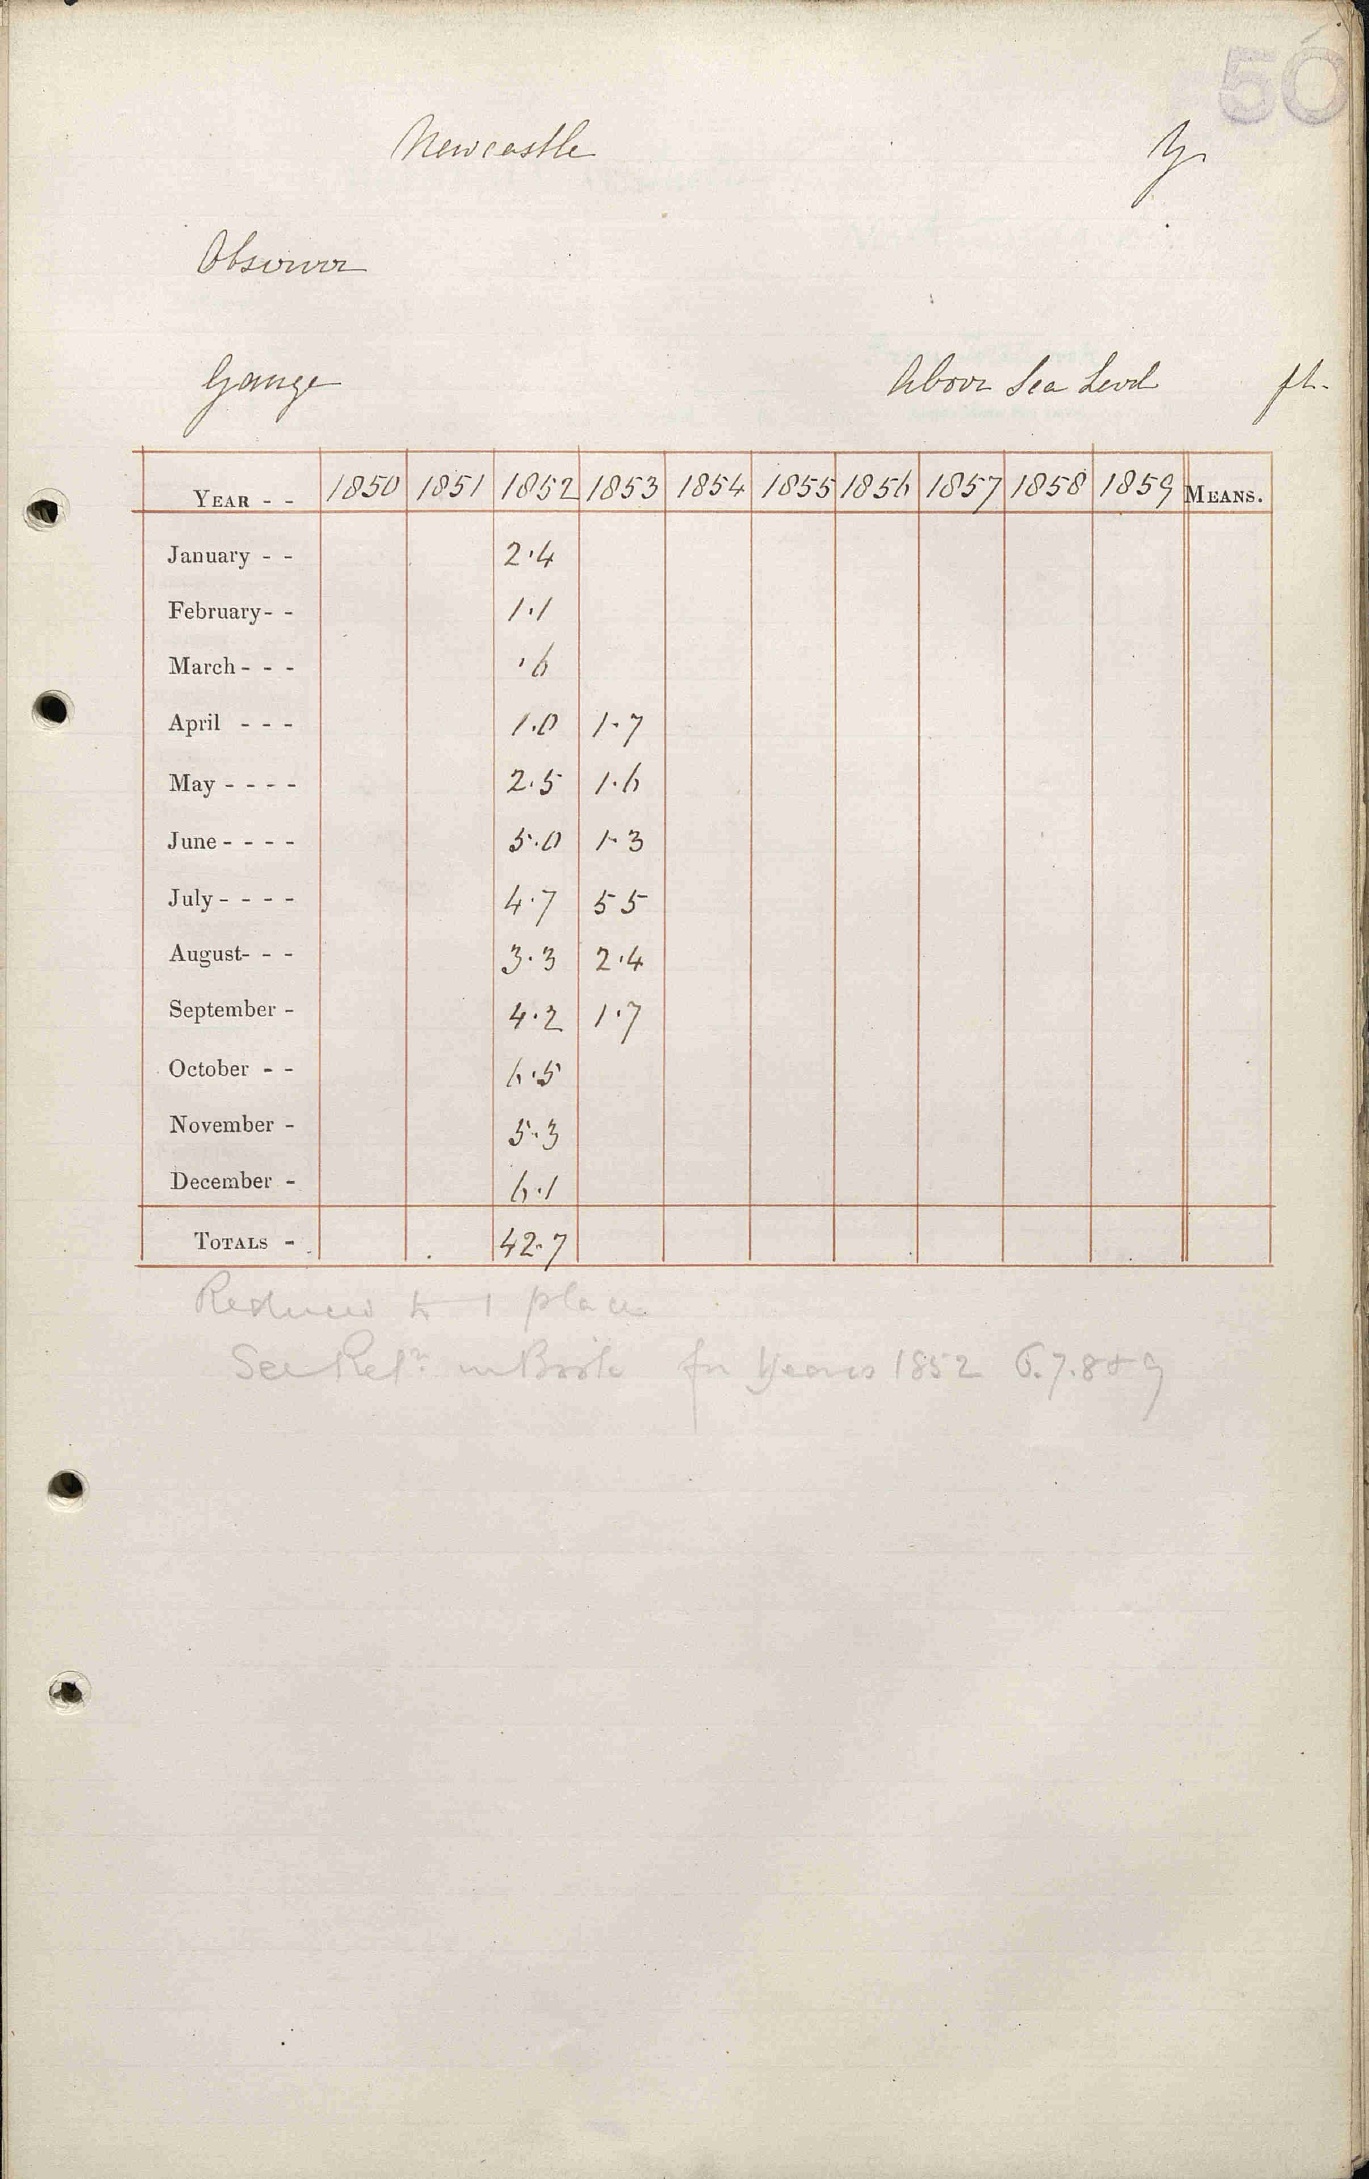 50
Newcastle
Observer
Gauge Above Sea Level ft.
YEAR - - 1850 1851 1852 1853 1854 1855 1856 1857 1858 1859 MEANS.
January - - 2.4
February- - 1.1
March - - - .6
April - - - 1.0 1.7
May - - - - 2.5 1.6
June - - - - 5.0 1.3
July - - - - 4.7 5 5
August- - - 3.3 2.4
September - 4.2 1.7
October - - 6.5
November - 5.3
December - 6.1
TOTALS - 42.7
Reduced to 1 place
See Retn. in Book for Years 1852 6.7.8 & 9